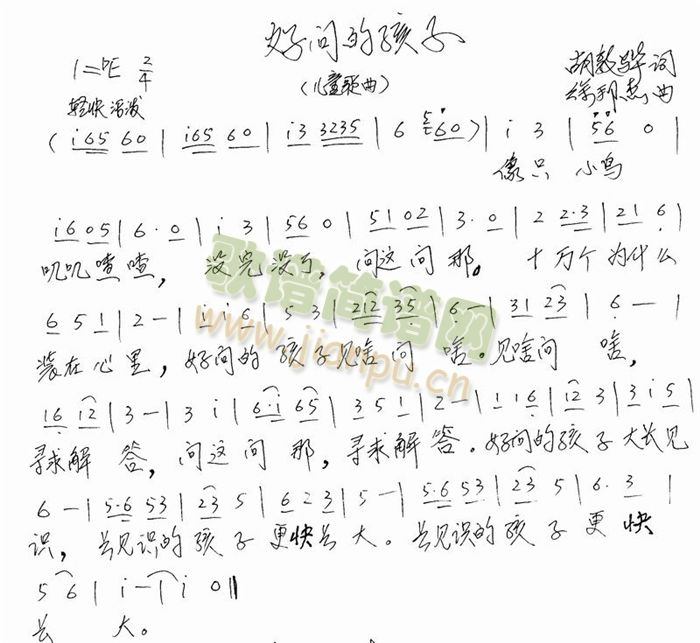 好问的孩子
1=♭E 2/4
(儿童歌曲)
胡敦骅 词
轻快活泼
徐邦杰 曲
( i 6 5 6 0 | i 6 5 6 0 | i 3 3 2 3 5 | 6 5 6 0 ) | i 3 | 5 6 0 |
像只 小鸟
i 6 0 5 | 6 · 0 | i 3 | 5 6 0 | 5 1 0 2 | 3 · 0 | 2 2 · 3 | 2 1 6 |
叽叽喳喳, 没完没了, 问这问那。 十万个为什么
6 5 1 | 2 - | 1 1 6 | 5 3 | 2 1 2 3 5 | 6 - | 3 1 2 3 | 6 - |
装在心里, 好问的 孩子见啥问 啥。见啥问 啥,
1 6 1 2 | 3 - | 3 i | 6 · i 6 5 | 3 5 1 | 2 - | 1 1 6 | 1 2 3 | 3 i 5 |
寻求解 答, 问这问 那, 寻求解 答。好问的孩子 大长见
6 - | 5 · 6 5 3 | 2 3 5 | 6 2 3 | 5 - | 5 · 6 5 3 | 2 3 5 | 6 · 3 |
识, 长见识的 孩子 更快长 大。长见识的 孩子 更 快
5 6 | i - | i 0 ||
长 大。
歌谱简谱网
www.jianpu.cn